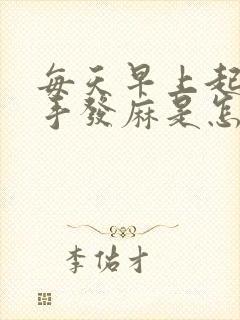 每天早上起
手發麻是怎
李佑才